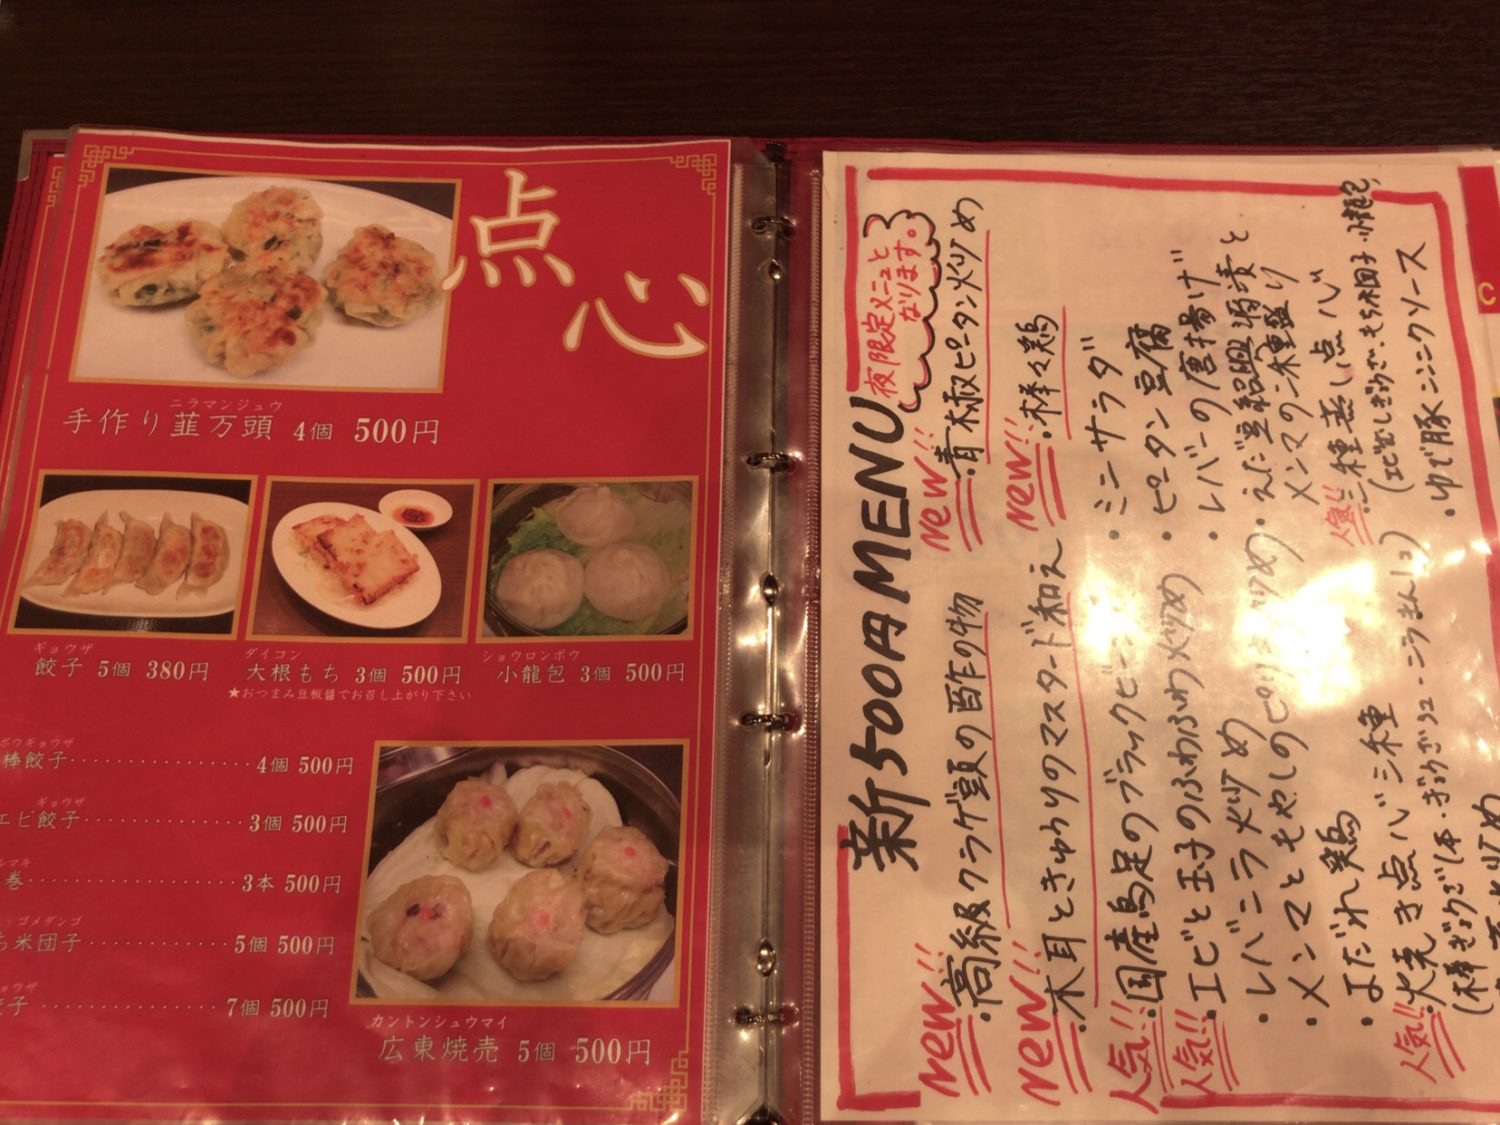 点心
ニラマンジュウ
手作り韮万頭 4個 500円
ギョウザ
餃子 5個 380円
ダイコン
大根もち 3個 500円
★おつまみ豆板醤でお召し上がり下さい
ショウロンポウ
小龍包 3個 500円
ボウギョウザ
棒餃子 4個 500円
ギョウザ
エビ餃子 3個 500円
ルマキ
巻 3本 500円
ゴメダンゴ
ち米団子 5個 500円
ョウザ
餃子 7個 500円
カントンシュウマイ
広東焼売 5個 500円
新500円MENU
夜限定メニューと
なります。
new!! ・高級クラゲ頭の酢の物
new!! ・青椒ピータン炒め
new!! ・木耳ときゅうりのマスタード和え
new!! ・棒々鶏
・ミニサラダ
人気!! ・国産鳥足のブラックビー
・ピータン豆腐
人気!! ・エビと玉子のふわふわ炒め
・レバーの唐揚げ
・レバニラ炒め
・えだ豆紹興酒漬と
メンマの二種盛り
・メンマともやしのピリ
人気!! 三種蒸し点心
(エビむしぎょうざ・もち米団子・小籠包)
・よだれ鶏
・ゆで豚ニンニクソース
人気!! ・焼き点心三種